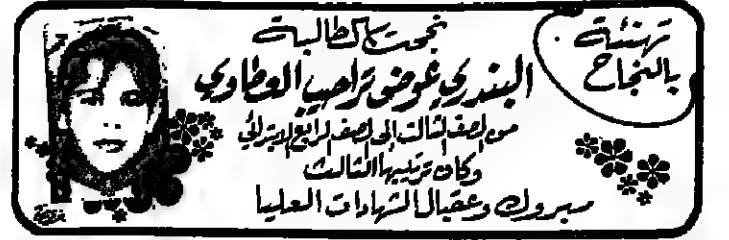 تهنئة
بالنجاح
نجحت الطالبة
البندري عوض تراحيب العطاوي
من الصف الثالث إلى الصف الرابع الابتدائي
وكان ترتيبها الثالث
مبروك وعقبال الشهادات العليا